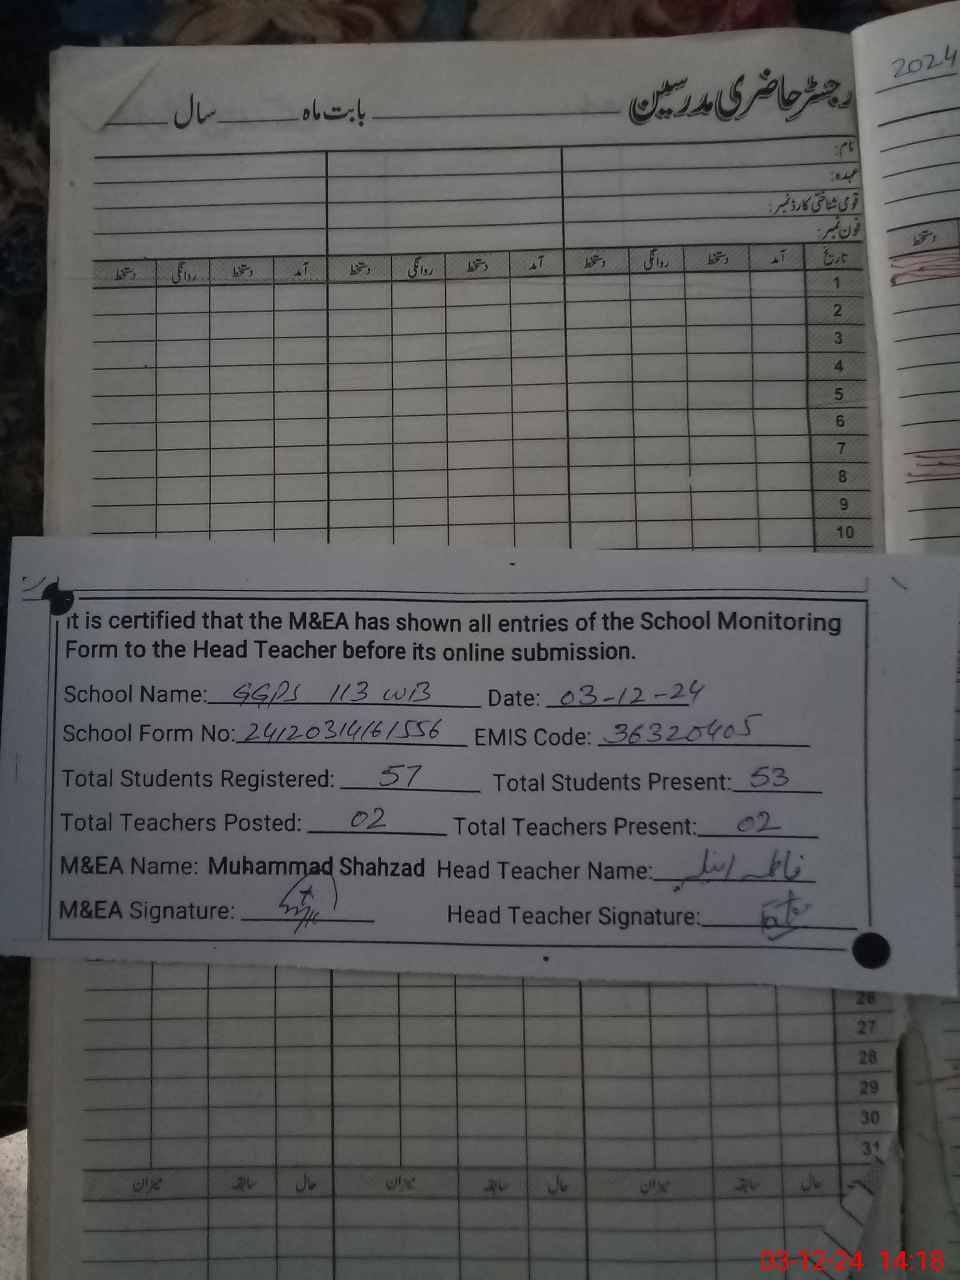 2024
رجسٹر حاضری مدرسین ______ بابت ماہ ______ سال ______
نام:
عہدہ:
قومی شناختی کارڈ نمبر:
فون نمبر:
تاریخ آمد دستخط روانگی دستخط آمد دستخط روانگی دستخط آمد دستخط روانگی دستخط
دستخط
1
2
3
4
5
6
7
8
9
10
It is certified that the M&EA has shown all entries of the School Monitoring
Form to the Head Teacher before its online submission.
School Name: GGPS 113 WB Date: 03-12-24
School Form No: 24120314161556 EMIS Code: 36320405
Total Students Registered: 57 Total Students Present: 53
Total Teachers Posted: 02 Total Teachers Present: 02
M&EA Name: Muhammad Shahzad Head Teacher Name:
M&EA Signature: Head Teacher Signature:
26
27
28
29
30
31
حال سابقہ میزان حال سابقہ میزان حال سابقہ میزان
03-12-24 14:18